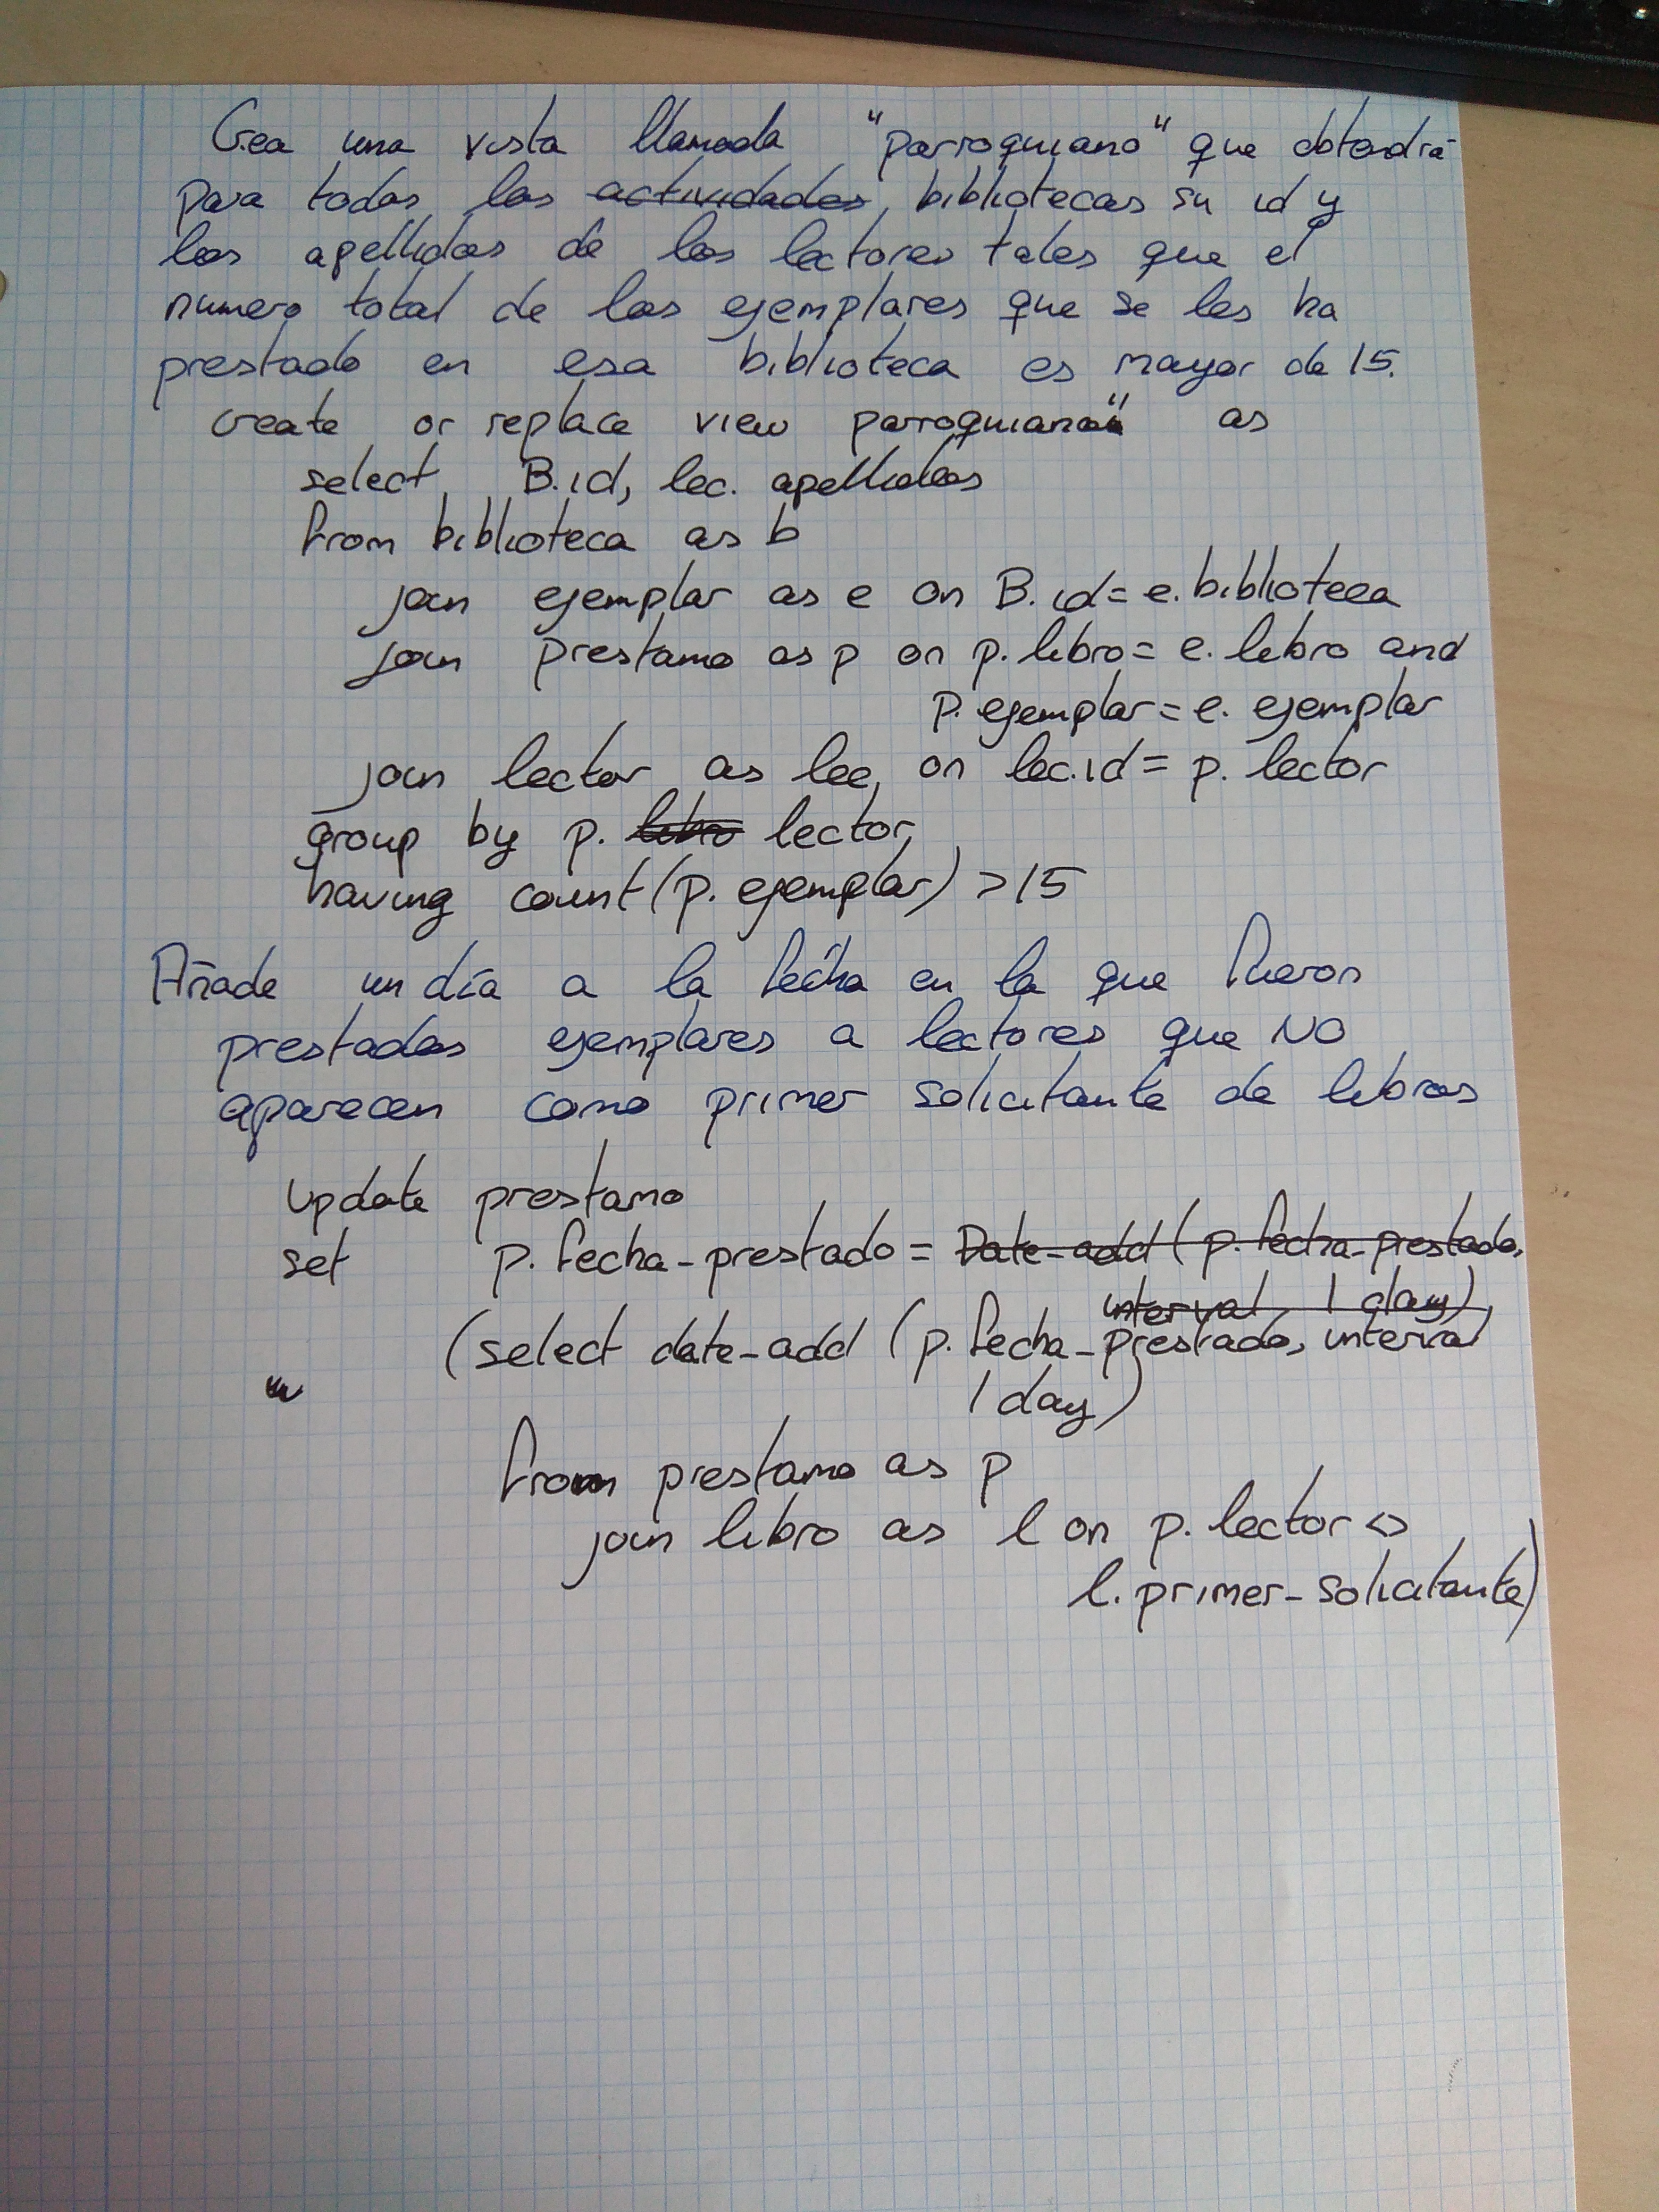 Crea una vista llamada "parroquiano" que obtendrá
para todas las actividades bibliotecas su id y
los apellidos de los lectores tales que el
numero total de los ejemplares que se les ha
prestado en esa biblioteca es mayor de 15.
create or replace view parroquiano" as
select B.id, lec. apellidos
from biblioteca as b
join ejemplar as e on B.id = e.biblioteca
join prestamo as p on p.libro = e.libro and
p.ejemplar = e.ejemplar
join lector as lec on lec.id = p.lector
group by p. libro lector,
having count(p.ejemplar) > 15
Añade un día a la fecha en la que fueron
prestados ejemplares a lectores que NO
aparecen como primer solicitante de libros
update prestamo
set p.fecha-prestado = Date-add(p.fecha-prestado,
interval 1 day)
(select date-add (p.fecha-prestado, interval
1 day)
from prestamo as p
join libro as l on p.lector <>
l.primer-solicitante)